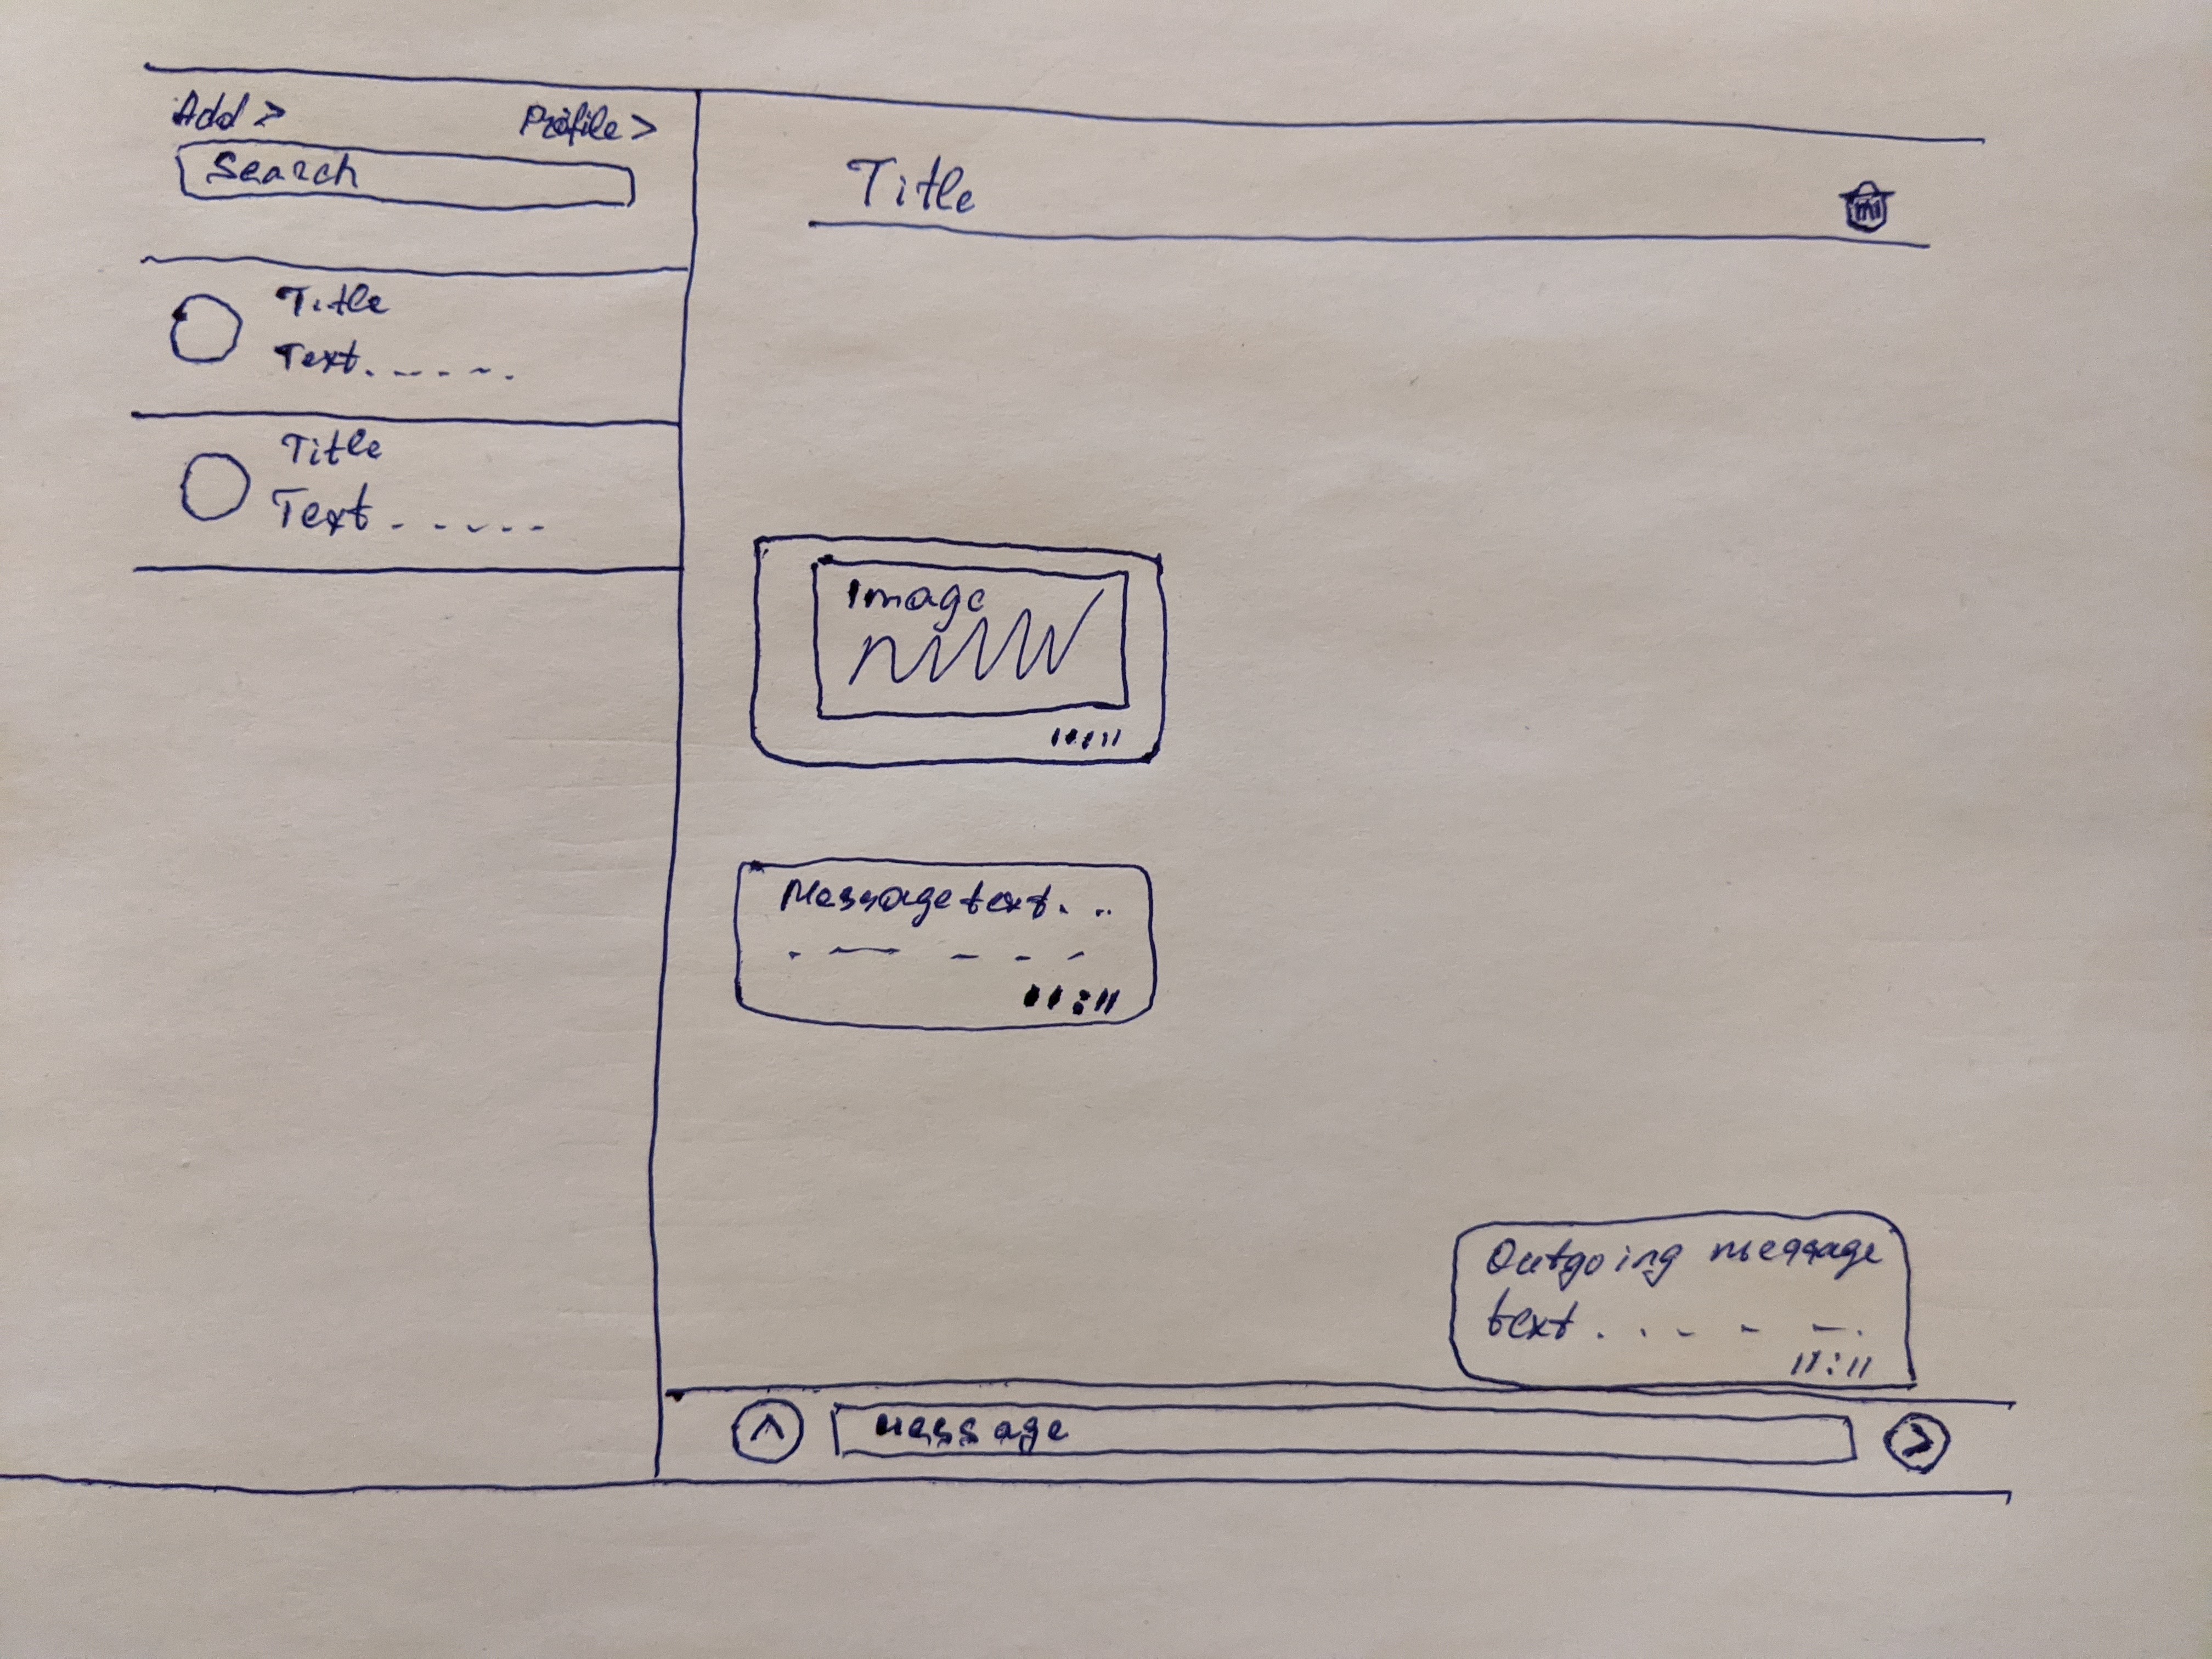 Add >
Profile >
Search
Title
Text. - - - - .
Title
Text - - - - -
Title
Image
11:11
Message text. ..
11:11
Outgoing message
text . . - - - .
11:11
^
Message
>